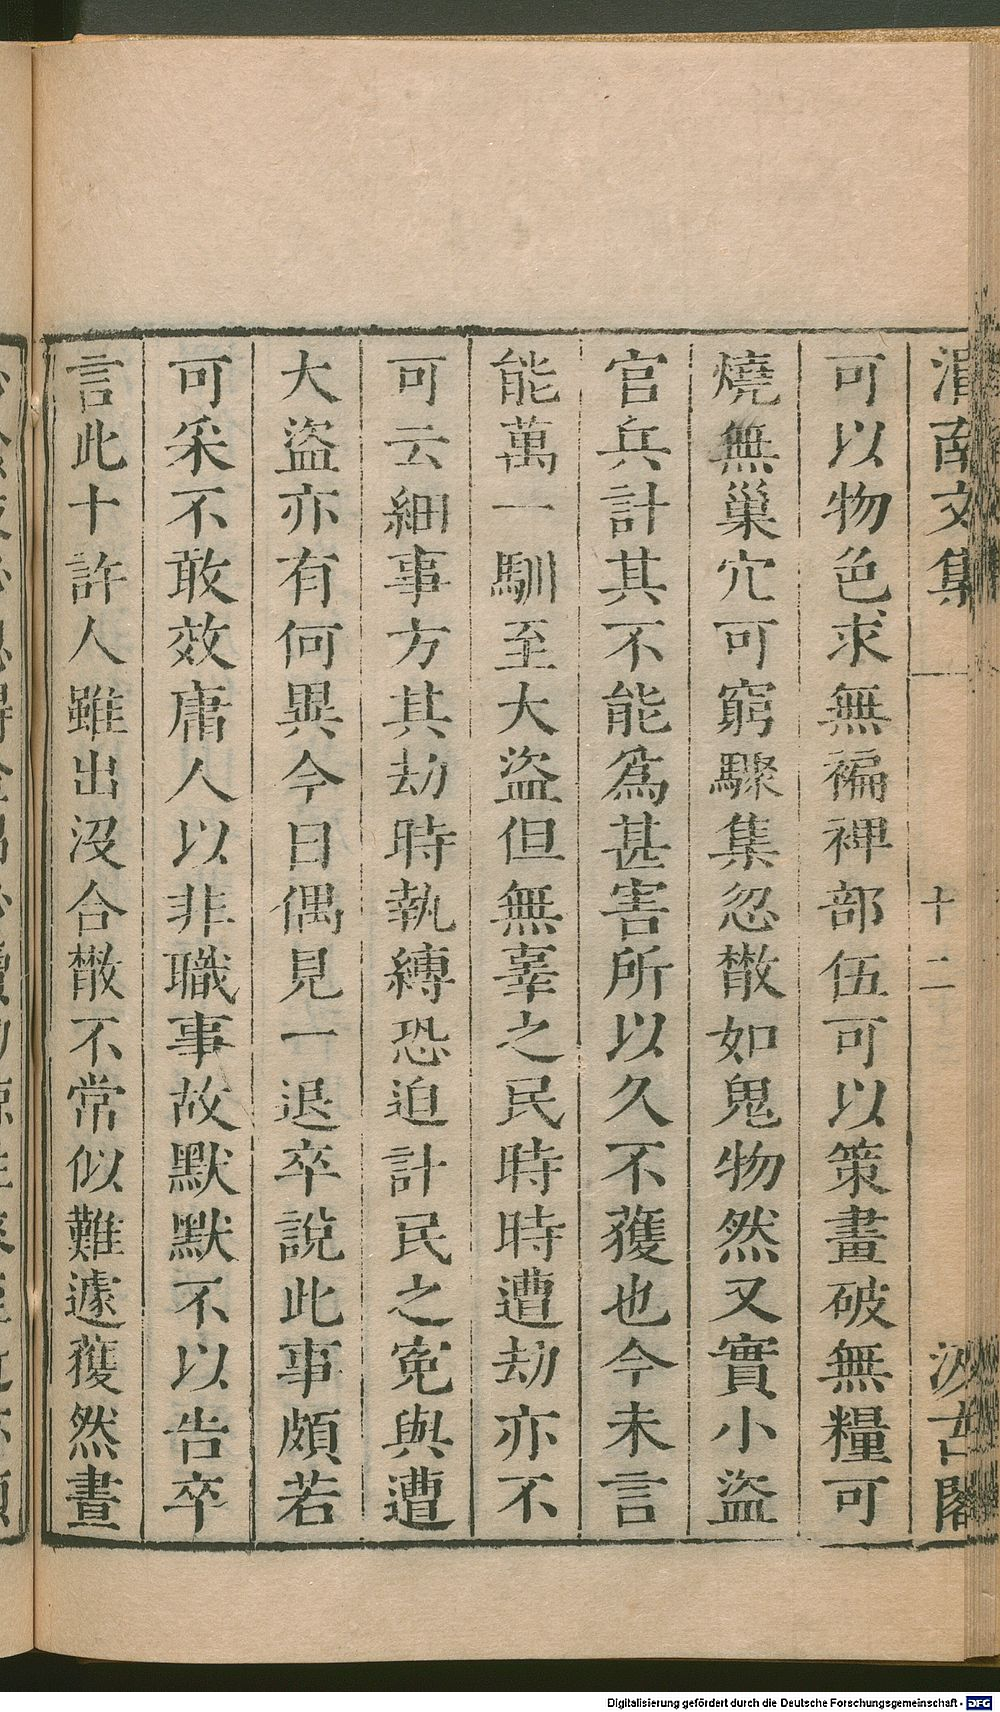 渭南文集 十二 汲古閣
可以物色求無褊裨部伍可以策畫破無糧可
燒無巢穴可窮驟集忽散如鬼物然又實小盜
官兵計其不能爲甚害所以久不獲也今未言
能萬一馴至大盜但無辜之民時時遭劫亦不
可云細事方其劫時執縛恐迫計民之寃與遭
大盜亦有何異今日偶見一退卒說此事頗若
可采不敢效庸人以非職事故默默不以告卒
言此十許人雖出沒合散不常似難遽獲然晝
Digitalisierung gefördert durch die Deutsche Forschungsgemeinschaft - DFG